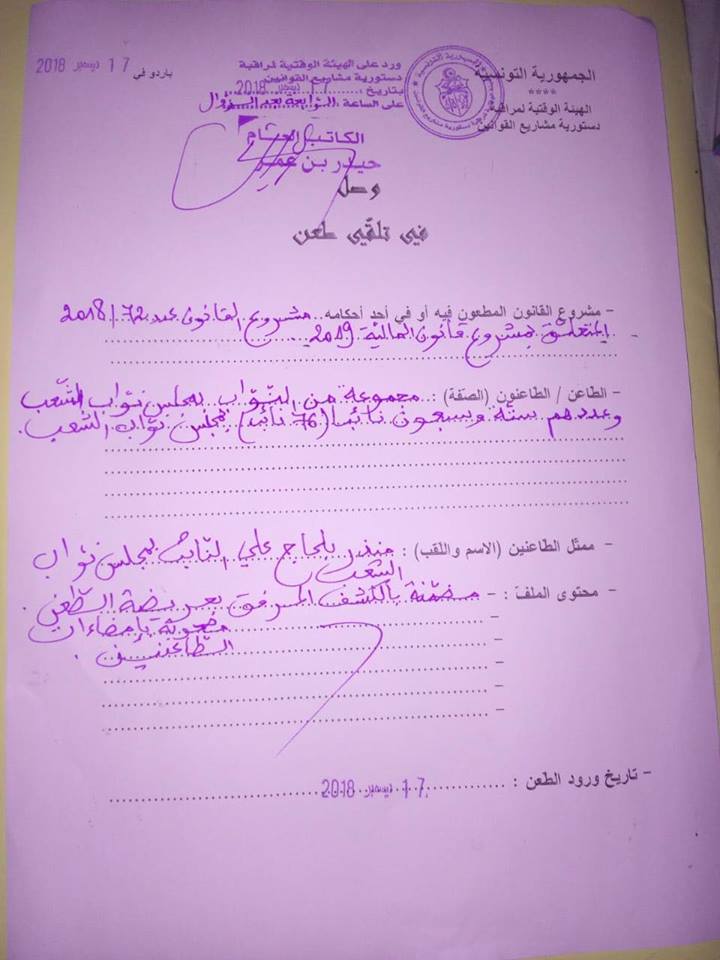 الجمهورية التونسية
****
الهيئة الوقتية لمراقبة
دستورية مشاريع القوانين
ورد على الهيئة الوقتية لمراقبة
دستورية مشاريع القوانين
بتاريخ : 17 ديسمبر 2018
على الساعة : الرابعة بعد الزوال
باردو في 17 ديسمبر 2018
الكاتب العام
حيدر بن عمر
وصل
في تلقي طعن
- مشروع القانون المطعون فيه أو في أحد أحكامه.. مشروع القانون عدد 72/2018
المتعلق بمشروع قانون المالية 2019
- الطاعن / الطاعنون (الصفة) : مجموعة من النوّاب بمجلس نوّاب الشّعب
وعددهم ستّة وسبعون نائبا (76 نائبا) بمجلس نوّاب الشعب.
- ممثل الطاعنين (الاسم واللقب) : منذر بلحاج علي النائب بمجلس نواب
الشعب
- محتوى الملف : - مضمّنة بالكشف المرفق بعريضة الطّعن.
- مصحوبة بإمضاءات
- الطّاعنين.
- تاريخ ورود الطعن : 17 ديسمبر 2018